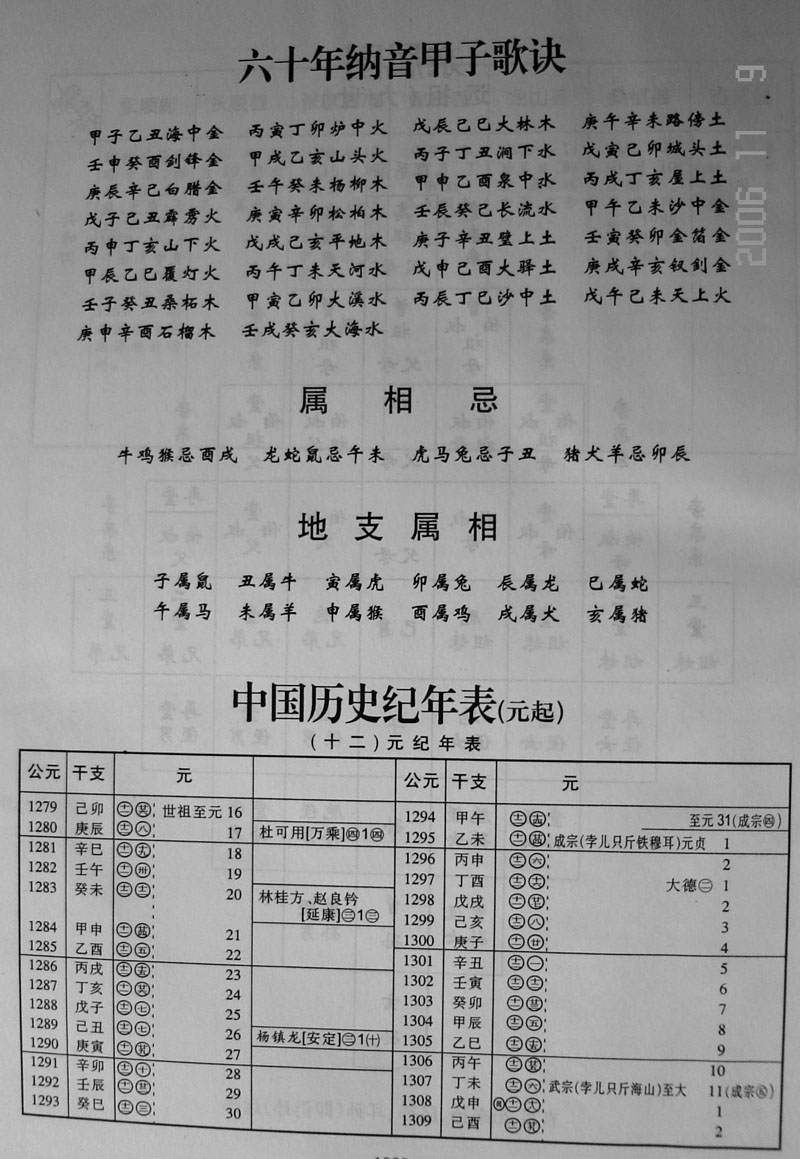 六十年纳音甲子歌诀
甲子乙丑海中金 丙寅丁卯炉中火 戊辰己巳大林木 庚午辛未路傍土
壬申癸酉剑锋金 甲戌乙亥山头火 丙子丁丑涧下水 戊寅己卯城头土
庚辰辛巳白腊金 壬午癸未杨柳木 甲申乙酉泉中水 丙戌丁亥屋上土
戊子己丑霹雳火 庚寅辛卯松柏木 壬辰癸巳长流水 甲午乙未沙中金
丙申丁亥山下火 戊戌己亥平地木 庚子辛丑壁上土 壬寅癸卯金箔金
甲辰乙巳覆灯火 丙午丁未天河水 戊申己酉大驿土 庚戌辛亥钗剑金
壬子癸丑桑柘木 甲寅乙卯大溪水 丙辰丁巳沙中土 戊午己未天上火
庚申辛酉石榴木 壬戌癸亥大海水
属相忌
牛鸡猴忌酉戌 龙蛇鼠忌午未 虎马兔忌子丑 猪犬羊忌卯辰
地支属相
子属鼠 丑属牛 寅属虎 卯属兔 辰属龙 巳属蛇
午属马 未属羊 申属猴 酉属鸡 戌属犬 亥属猪
中国历史纪年表(元起)
(十二)元纪年表
公元 干支 元
1279 己卯 世祖至元 16
1280 庚辰 17 杜可用[万乘]㊃1㊃
1281 辛巳 18
1282 壬午 19
1283 癸未 20 林桂方、赵良钤
[延康]㊂1㊂
1284 甲申 21
1285 乙酉 22
1286 丙戌 23
1287 丁亥 24
1288 戊子 25
1289 己丑 26 杨镇龙[安定]㊂1㈩
1290 庚寅 27
1291 辛卯 28
1292 壬辰 29
1293 癸巳 30
公元 干支 元
1294 甲午 至元 31(成宗㊃)
1295 乙未 成宗(孛儿只斤铁穆耳)元贞 1
1296 丙申 2
1297 丁酉 大德㊁ 1
1298 戊戌 2
1299 己亥 3
1300 庚子 4
1301 辛丑 5
1302 壬寅 6
1303 癸卯 7
1304 甲辰 8
1305 乙巳 9
1306 丙午 10
1307 丁未 武宗(孛儿只斤海山)至大 11(成宗㊄)
1308 戊申 1
1309 己酉 2
2006 11 9